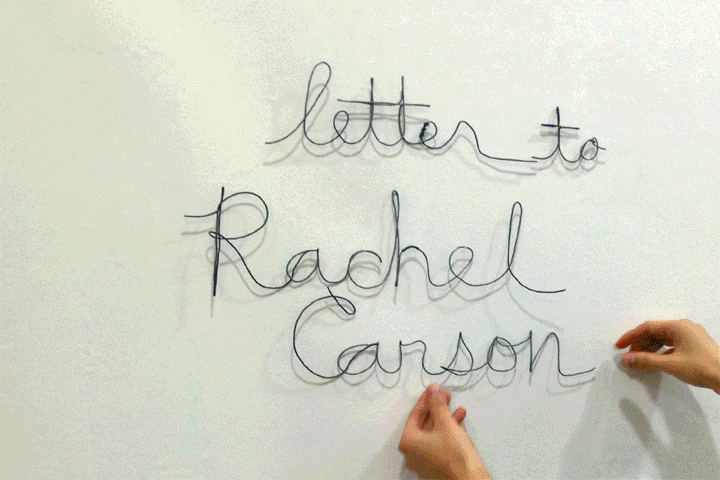 letter to
Rachel
Carson